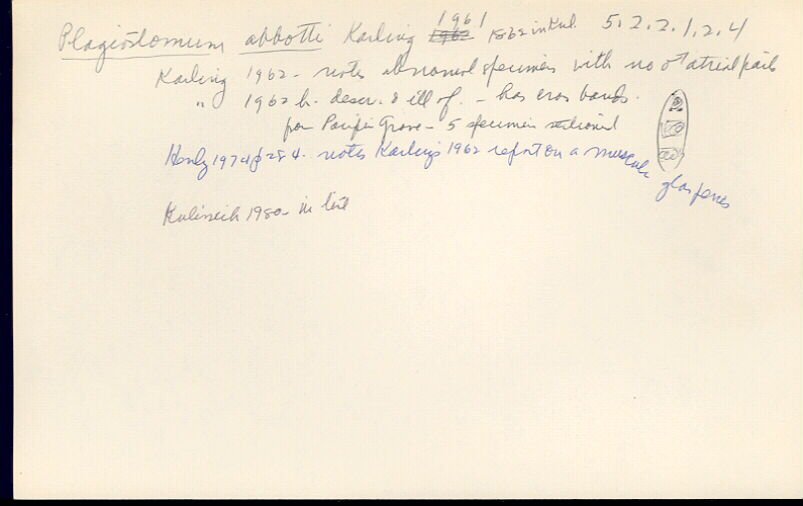 Plagiostomum abbotti Karling 1961 1962 1862 in Kul. 5.2.2.1.2.4
Karling 1962 - notes abnormal specimen with no ♂ atrial parts
" 1962 b. descr. & ill of. - has cross bands.
from Pacific Grove - 5 specimens sectioned
Henly 1974 p 284. notes Karling's 1962 report on a muscular glas penis
Kulinich 1980 - in list